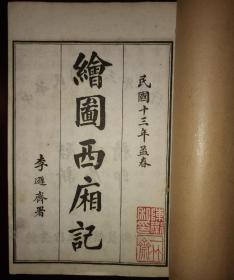 民國十三年孟春
繪圖西廂記
李遜齋署